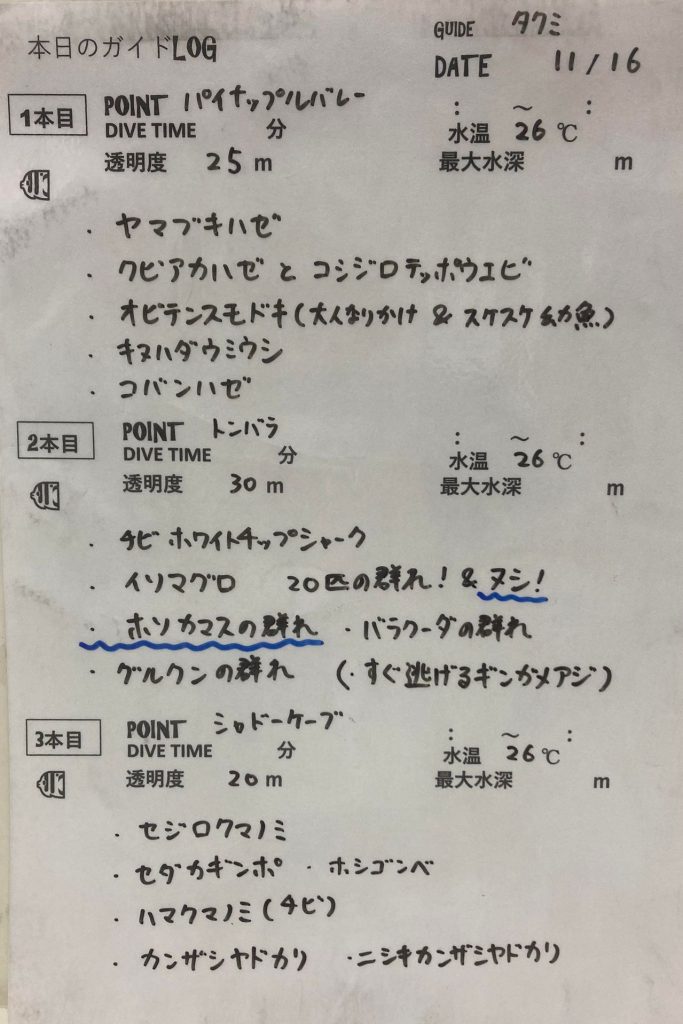 本日のガイドLOG
GUIDE タクミ
DATE 11/16
1本目 POINT パイナップルバレー : ～ :
DIVE TIME 分 水温 26℃
透明度 25 m 最大水深 m
・ヤマブキハゼ
・クビアカハゼ と コシジロテッポウエビ
・オビテンスモドキ(大人なりかけ & スケスケ幼魚)
・キヌハダウミウシ
・コバンハゼ
2本目 POINT トンバラ : ～ :
DIVE TIME 分 水温 26℃
透明度 30 m 最大水深 m
・チビ ホワイトチップシャーク
・イソマグロ 20匹の群れ! & ヌシ!
・ホソカマスの群れ ・バラクーダの群れ
・グルクンの群れ (・すぐ逃げるギンガメアジ)
3本目 POINT シャドーケーブ : ～ :
DIVE TIME 分 水温 26℃
透明度 20 m 最大水深 m
・セジロクマノミ
・セダカギンポ ・ホシゴンベ
・ハマクマノミ(チビ)
・カンザシヤドカリ ・ニシキカンザシヤドカリ